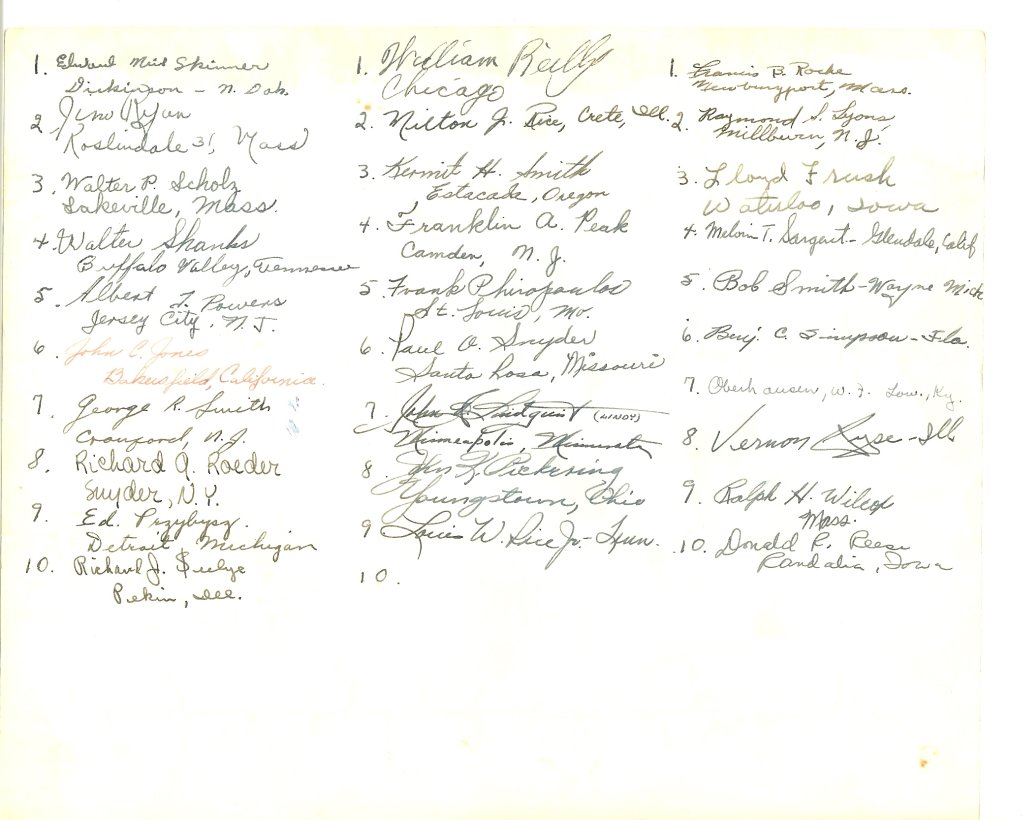 1. Edward Skinner
Dickinson - N. Dak.
2. Jim Ryan
Roslindale 31, Mass
3. Walter P. Scholz
Lakeville, Mass.
4. Walter Shanks
Buffalo Valley, Tennessee
5. Albert T. Powers
Jersey City, N.J.
6. John C. Jones
Bakersfield, California.
7. George R. Smith
Cranford, N.J.
8. Richard A. Roeder
Snyder, N.Y.
9. Ed. Przybysz.
Detroit Michigan
10. Richard J.
Pekin, Ill.
1. William Reilly
Chicago
2. Milton J. Rice, Crete, Ill.
3. Kermit H. Smith
Estacada, Oregon
4. Franklin A. Peak
Camden, N.J.
5. Frank Phiropoulos
St. Louis, Mo.
6. Paul O. Snyder
Santa Rosa, Missouri
7. John Lindquist (LINDY)
Minneapolis, Minnesota
8. John Pickering
Youngstown, Ohio
9 Louis W. Rice Jr. - Tenn.
10.
1. Francis B. Roche
Newburyport, Mass.
2. Raymond S. Lyons
Millburn, N.J.
3. Lloyd Frush
Waterloo, Iowa
4. Melvin T. Sargent - Glendale, Calif
5. Bob Smith - Wayne Mich
6. Benj. C. Simpson - Fla.
7. Oberhausen, W. F. Lou., Ky.
8. Vernon - Ill
9. Ralph H. Wilcox
Mass.
10. Donald R. Reese
Randalia, Iowa